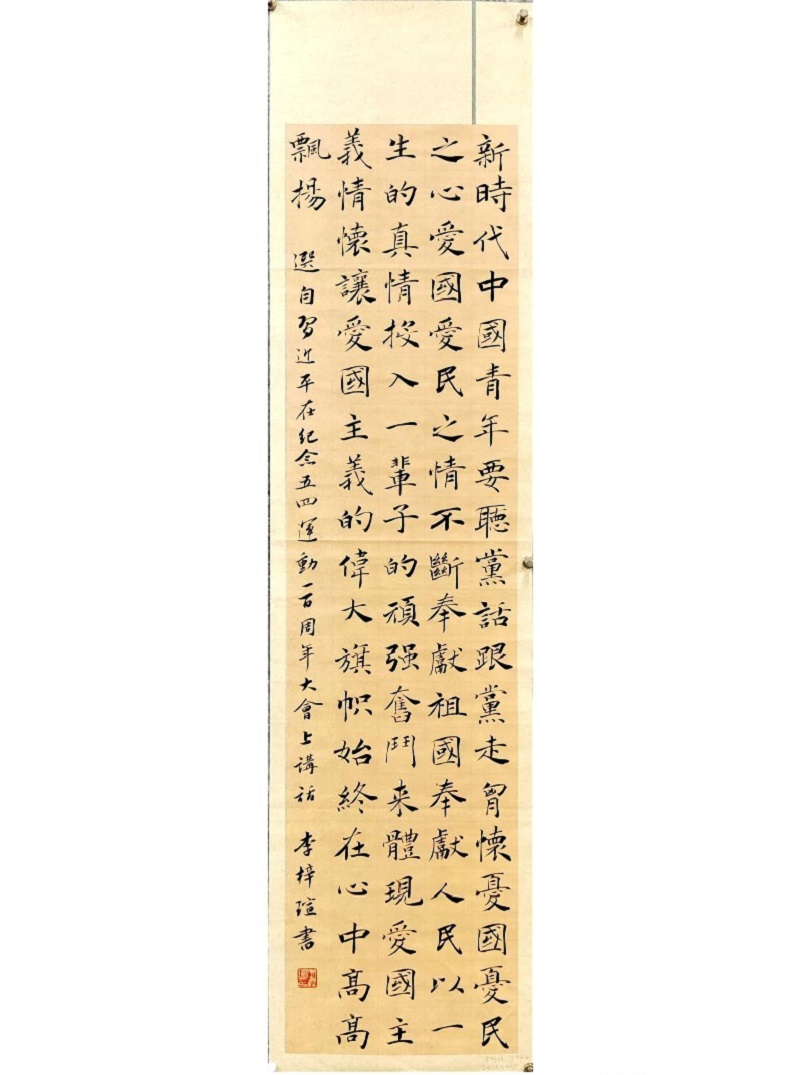 新時代中國青年要聽黨話跟黨走胷懷憂國憂民
之心愛國愛民之情不斷奉獻祖國奉獻人民以一
生的真情投入一輩子的頑强奮鬥来體現愛國主
義情懷讓愛國主義的偉大旗帜始終在心中髙髙
飄揚 選自習近平在纪念五四運動一百周年大會上講话 李梓瑄書